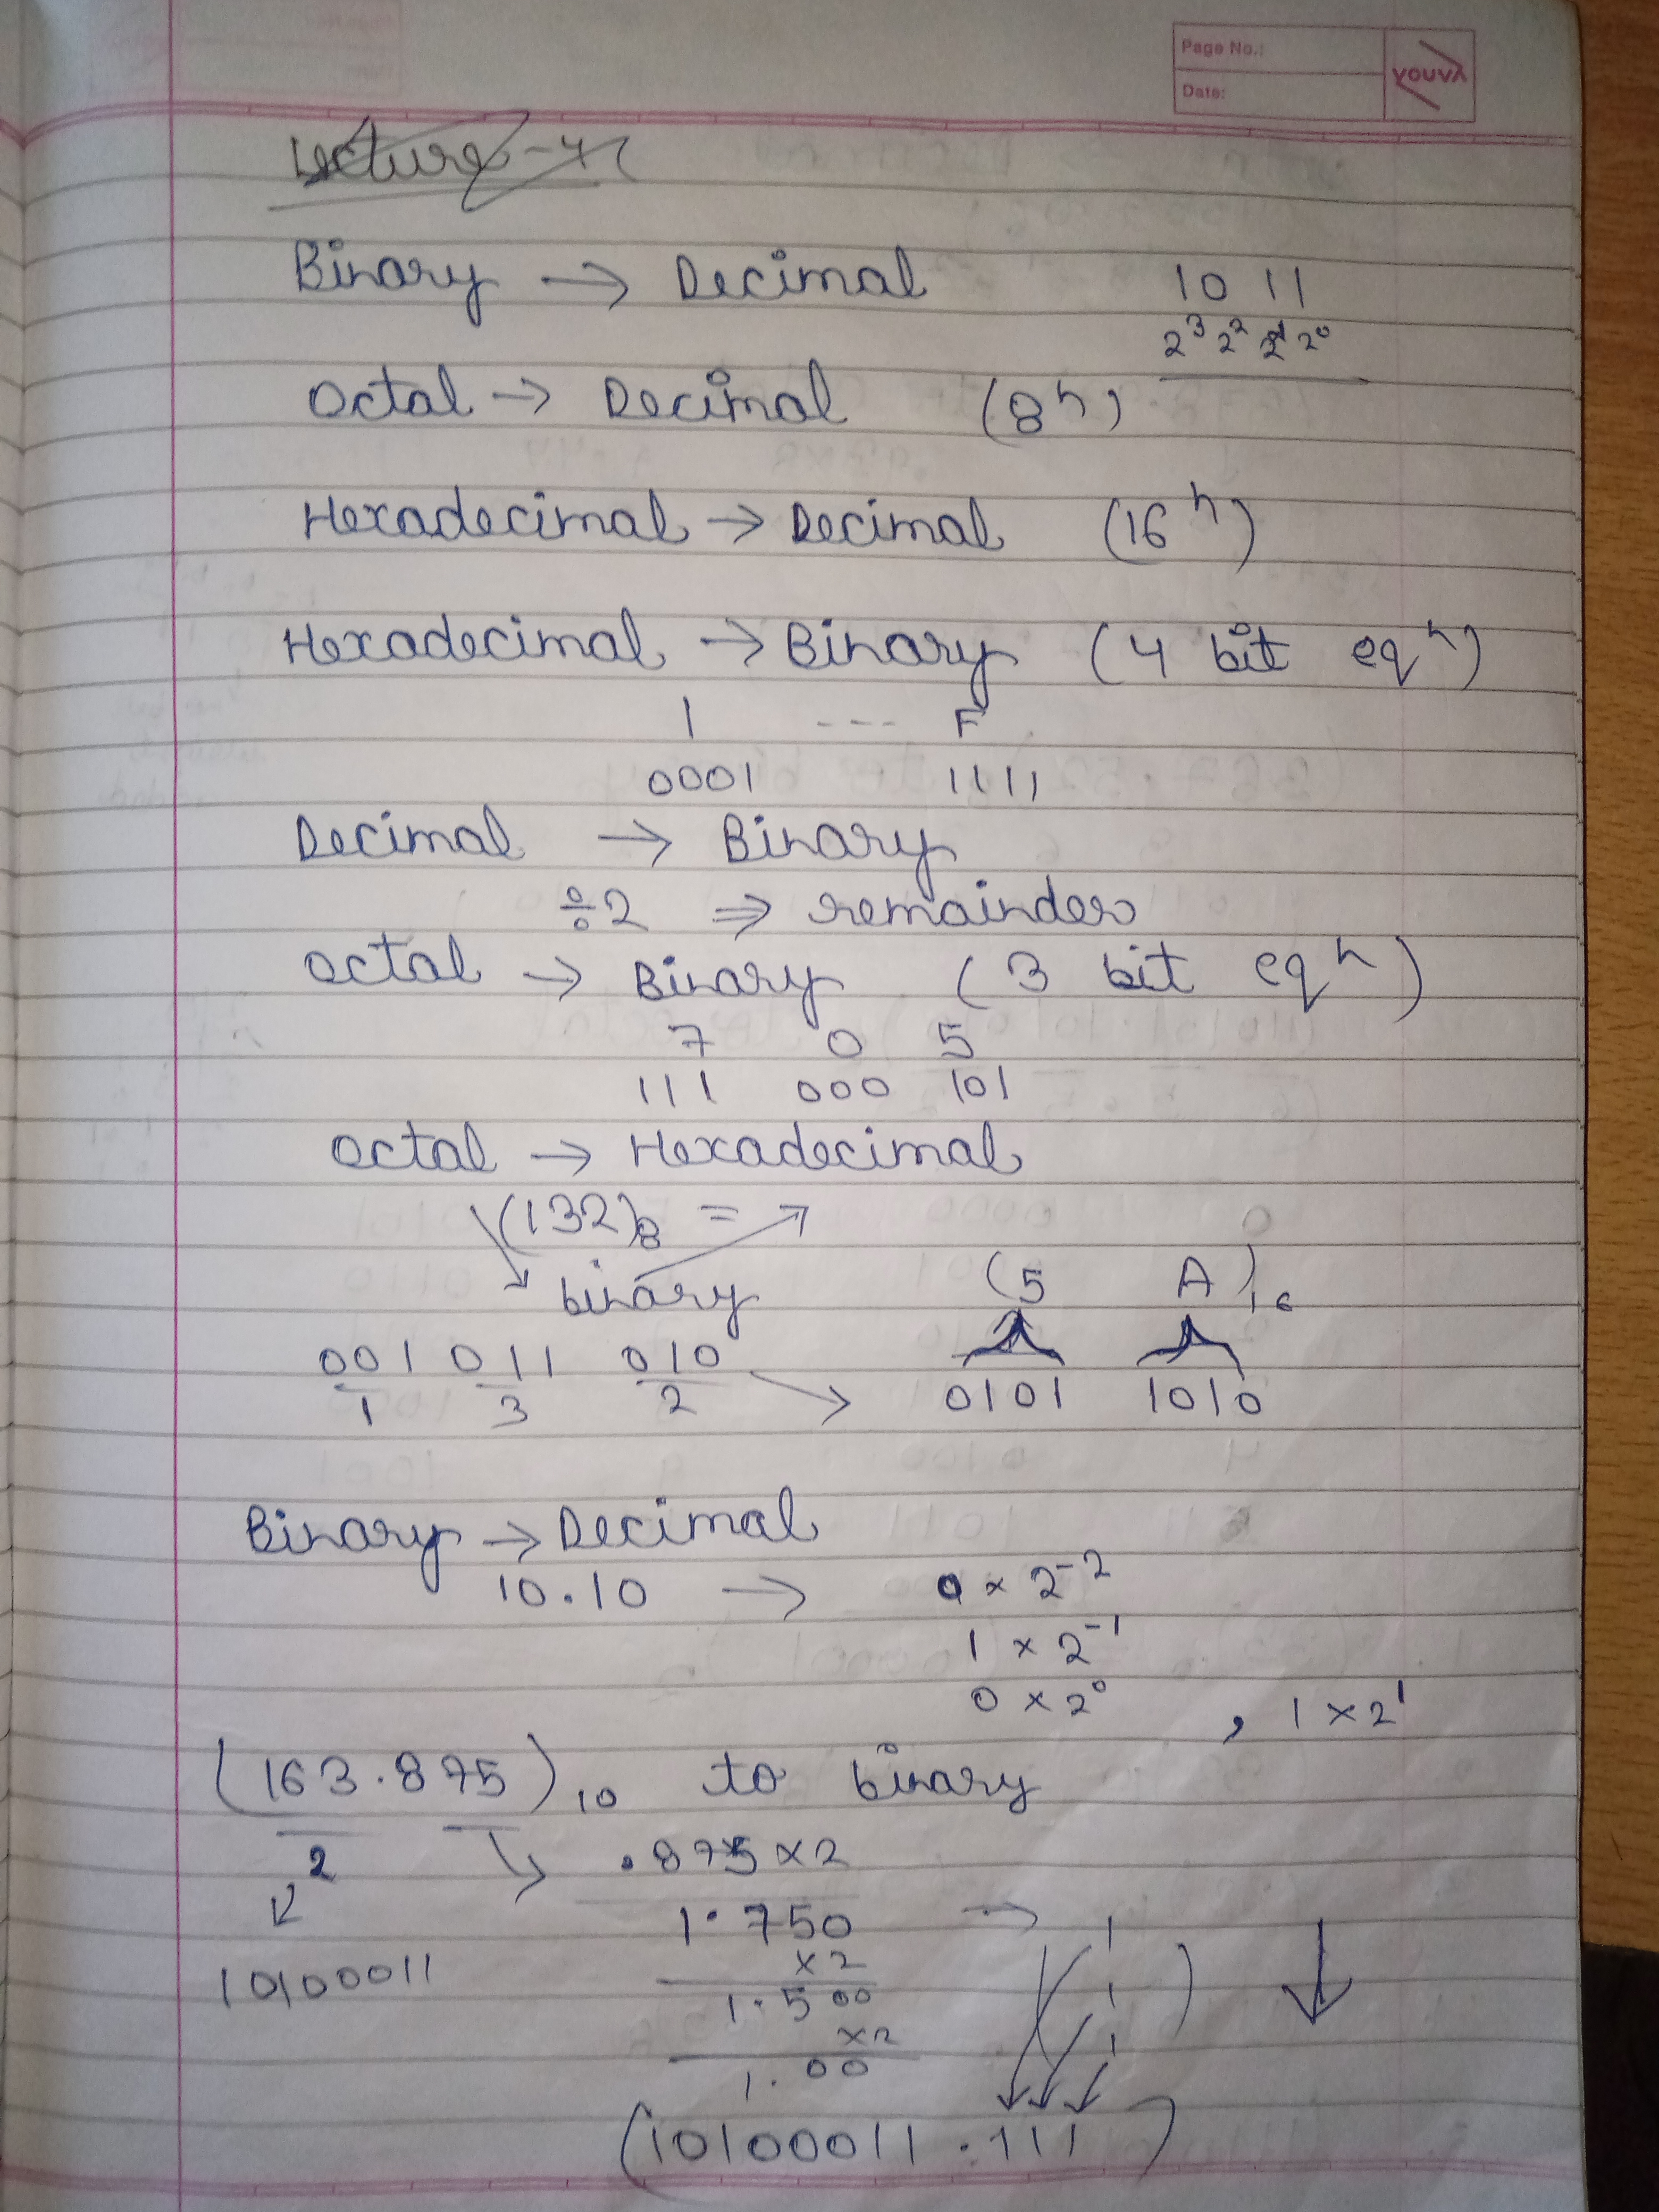 Page No.:
Date:
youva
Lecture-4
Binary → Decimal 10 11
2³ 2² 2¹ 2⁰
Octal → Decimal (8ⁿ)
Hexadecimal → Decimal (16ⁿ)
Hexadecimal → Binary (4 bit eqⁿ)
1 --- F
0001 1111
Decimal → Binary
÷2 ⇒ remainder
Octal → Binary (3 bit eqⁿ)
7 0 5
111 000 101
Octal → Hexadecimal
(132)₈ =
binary (5 A)₁₆
001 011 010 → 0101 1010
1 3 2
Binary → Decimal
10.10 → 0 × 2⁻²
1 × 2⁻¹
0 × 2⁰ , 1 × 2¹
(163.875)₁₀ to binary
2 ↘ .875 × 2
↙ 1.750 → 1
10100011 ×2
1.500 1
×2
1.00 1
(10100011.111)